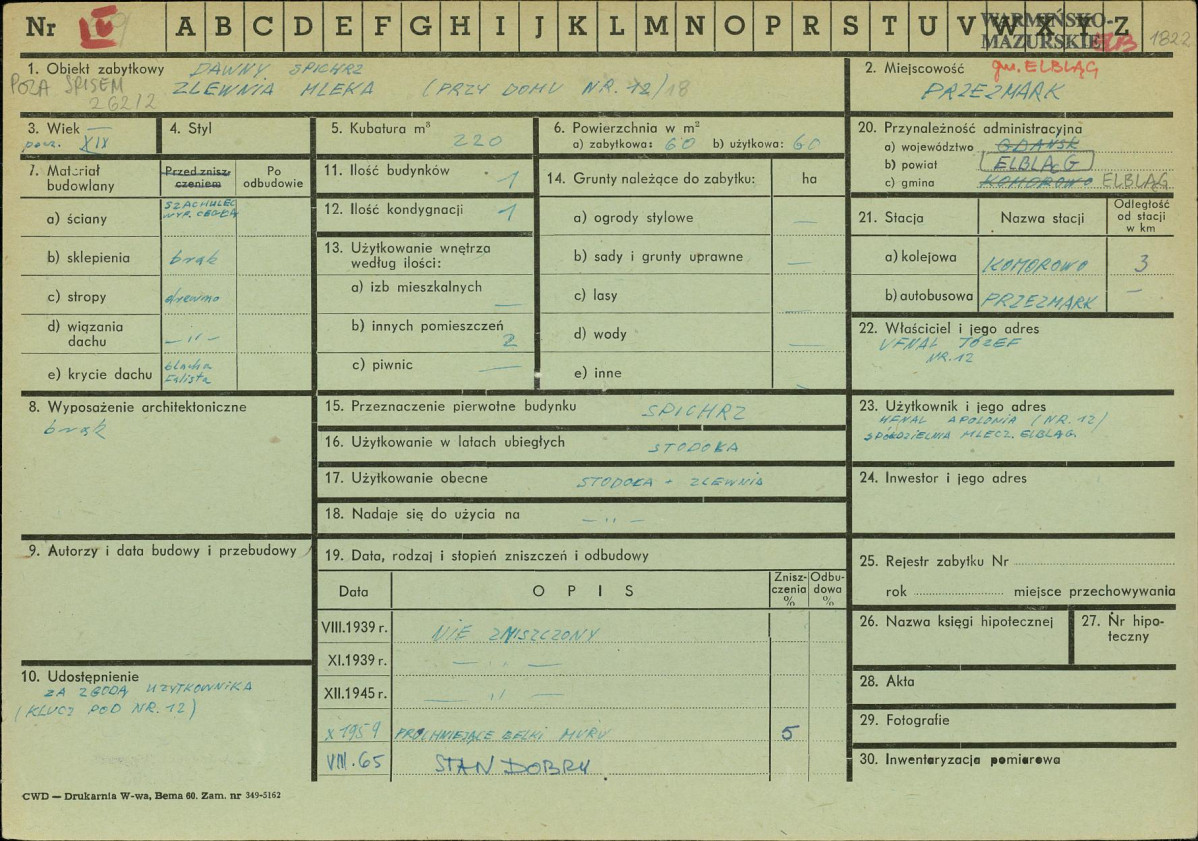 Nr IV A B C D E F G H I J K L M N O P R S T U V W X Y Z WARMIŃSKO-
MAZURSKIE 1822
1. Obiekt zabytkowy DAWNY SPICHRZ
POZA SPISEM ZLEWNIA MLEKA (PRZY DOMU NR. 12)/18
262/2
2. Miejscowość gm. ELBLĄG
PRZEZMARK
3. Wiek
pocz. XIX
4. Styl
5. Kubatura m³
220
6. Powierzchnia w m²
a) zabytkowa: 60 b) użytkowa: 60
20. Przynależność administracyjna
a) województwo GDAŃSK
b) powiat ELBLĄG
c) gmina KOMOROWO ELBLĄG
7. Materiał budowlany
Przed zniszczeniem
Po odbudowie
a) ściany SZACHULEC
WYP. CEGŁĄ
b) sklepienia brak
c) stropy drewno
d) wiązania dachu – „ –
e) krycie dachu blacha
falista
11. Ilość budynków 1
12. Ilość kondygnacji 1
13. Użytkowanie wnętrza
według ilości:
a) izb mieszkalnych —
b) innych pomieszczeń 2
c) piwnic —
14. Grunty należące do zabytku: ha
a) ogrody stylowe —
b) sady i grunty uprawne —
c) lasy —
d) wody —
e) inne
21. Stacja Nazwa stacji Odległość
od stacji
w km
a) kolejowa KOMOROWO 3
b) autobusowa PRZEZMARK —
22. Właściciel i jego adres
UFNAL JÓZEF
NR. 12
8. Wyposażenie architektoniczne
brak
15. Przeznaczenie pierwotne budynku SPICHRZ
16. Użytkowanie w latach ubiegłych STODOŁA
17. Użytkowanie obecne STODOŁA + ZLEWNIA
18. Nadaje się do użycia na – „ –
23. Użytkownik i jego adres
UFNAL APOLONIA (NR. 12)
SPÓŁDZIELNIA MLECZ. ELBLĄG.
24. Inwestor i jego adres
9. Autorzy i data budowy i przebudowy
19. Data, rodzaj i stopień zniszczeń i odbudowy
Data O P I S Zniszczenia % Odbudowa %
VIII.1939 r. NIE ZNISZCZONY
XI.1939 r. — „ —
XII.1945 r. — „ —
X 1959 PRÓCHNIEJĄCE BELKI MURU 5
VIII.65 STAN DOBRY
25. Rejestr zabytku Nr
rok miejsce przechowywania
26. Nazwa księgi hipotecznej
27. Nr hipoteczny
10. Udostępnienie
ZA ZGODĄ UŻYTKOWNIKA
(KLUCZ POD NR. 12)
28. Akta
29. Fotografie
30. Inwentaryzacja pomiarowa
CWD — Drukarnia W-wa, Bema 60. Zam. nr 349-5162